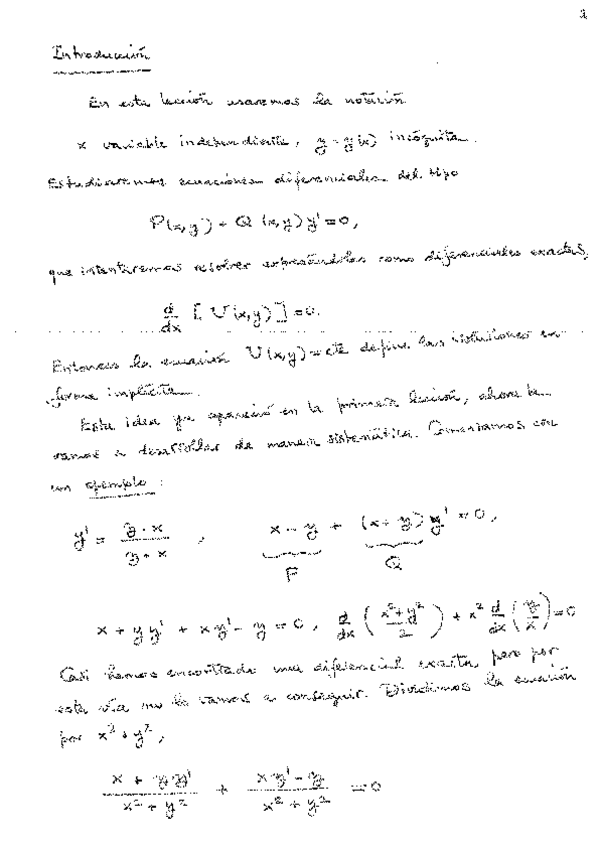 2
Introducción
En esta lección usaremos la notación
x variable independiente, y = y(x) incógnita.
Estudiaremos ecuaciones diferenciales del tipo
P(x,y) + Q (x,y) y' = 0,
que intentaremos resolver expresándolas como diferenciales exactas,
d/dx [ U(x,y) ] = 0.
Entonces la ecuación U(x,y) = cte define las soluciones en
forma implícita.
Esta idea ya apareció en la primera lección, ahora la
vamos a desarrollar de manera sistemática. Comenzamos con
un ejemplo :
y' = (y - x)/(y + x) , x - y + (x + y) y' = 0,
P Q
x + y y' + x y' - y = 0, d/dx ( (x² + y²)/2 ) + x² d/dx ( y/x ) = 0
Casi hemos encontrado una diferencial exacta, pero por
esta vía no lo vamos a conseguir. Dividimos la ecuación
por x² + y²,
(x + y y')/(x² + y²) + (x y' - y)/(x² + y²) = 0